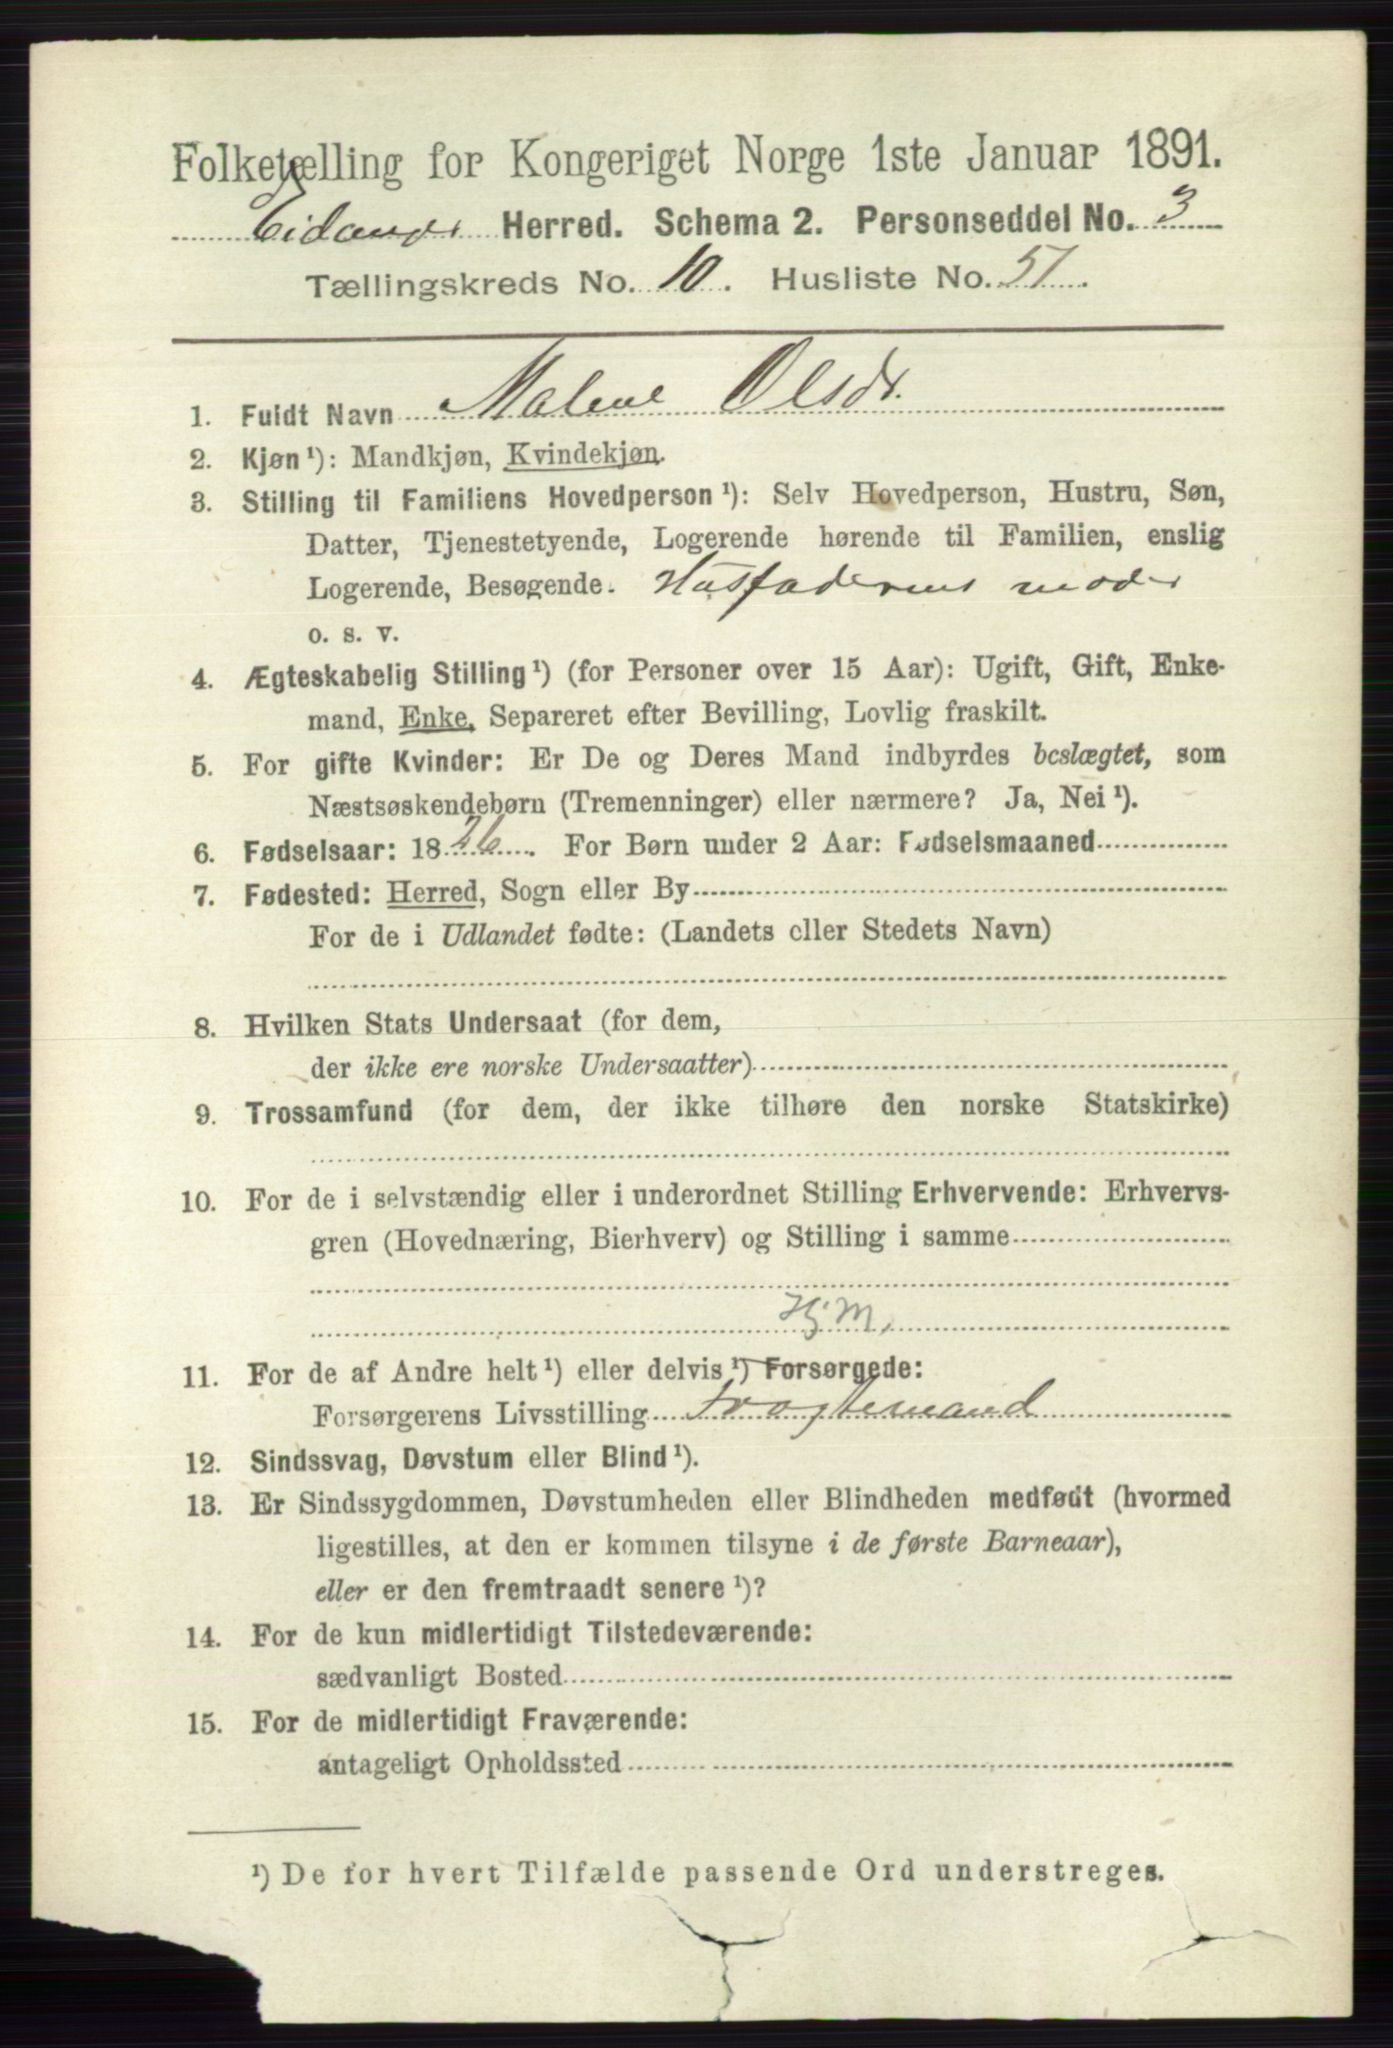 Folketælling for Kongeriget Norge 1ste Januar 1891.
Eidanger Herred. Schema 2. Personseddel No. 3
Tællingskreds No. 10. Husliste No. 51.
1. Fuldt Navn Malene Olsdr.
2. Kjøn¹): Mandkjøn, Kvindekjøn.
3. Stilling til Familiens Hovedperson¹): Selv Hovedperson, Hustru, Søn,
Datter, Tjenestetyende, Logerende hørende til Familien, enslig
Logerende, Besøgende. Husfaderens moder
o. s. v.
4. Ægteskabelig Stilling¹) (for Personer over 15 Aar): Ugift, Gift, Enke-
mand, Enke, Separeret efter Bevilling, Lovlig fraskilt.
5. For gifte Kvinder: Er De og Deres Mand indbyrdes beslægtet, som
Næstsøskendebørn (Tremenninger) eller nærmere? Ja, Nei¹).
6. Fødselsaar: 1826. For Børn under 2 Aar: Fødselsmaaned
7. Fødested: Herred, Sogn eller By
For de i Udlandet fødte: (Landets eller Stedets Navn)
8. Hvilken Stats Undersaat (for dem,
der ikke ere norske Undersaatter)
9. Trossamfund (for dem, der ikke tilhøre den norske Statskirke)
10. For de i selvstændig eller i underordnet Stilling Erhvervende: Erhvervs-
gren (Hovednæring, Bierhverv) og Stilling i samme
Hj.M.
11. For de af Andre helt¹) eller delvis¹) Forsørgede:
Forsørgerens Livsstilling Fragtemand
12. Sindssvag, Døvstum eller Blind¹).
13. Er Sindssygdommen, Døvstumheden eller Blindheden medfødt (hvormed
ligestilles, at den er kommen tilsyne i de første Barneaar),
eller er den fremtraadt senere¹)?
14. For de kun midlertidigt Tilstedeværende:
sædvanligt Bosted
15. For de midlertidigt Fraværende:
antageligt Opholdssted
¹) De for hvert Tilfælde passende Ord understreges.